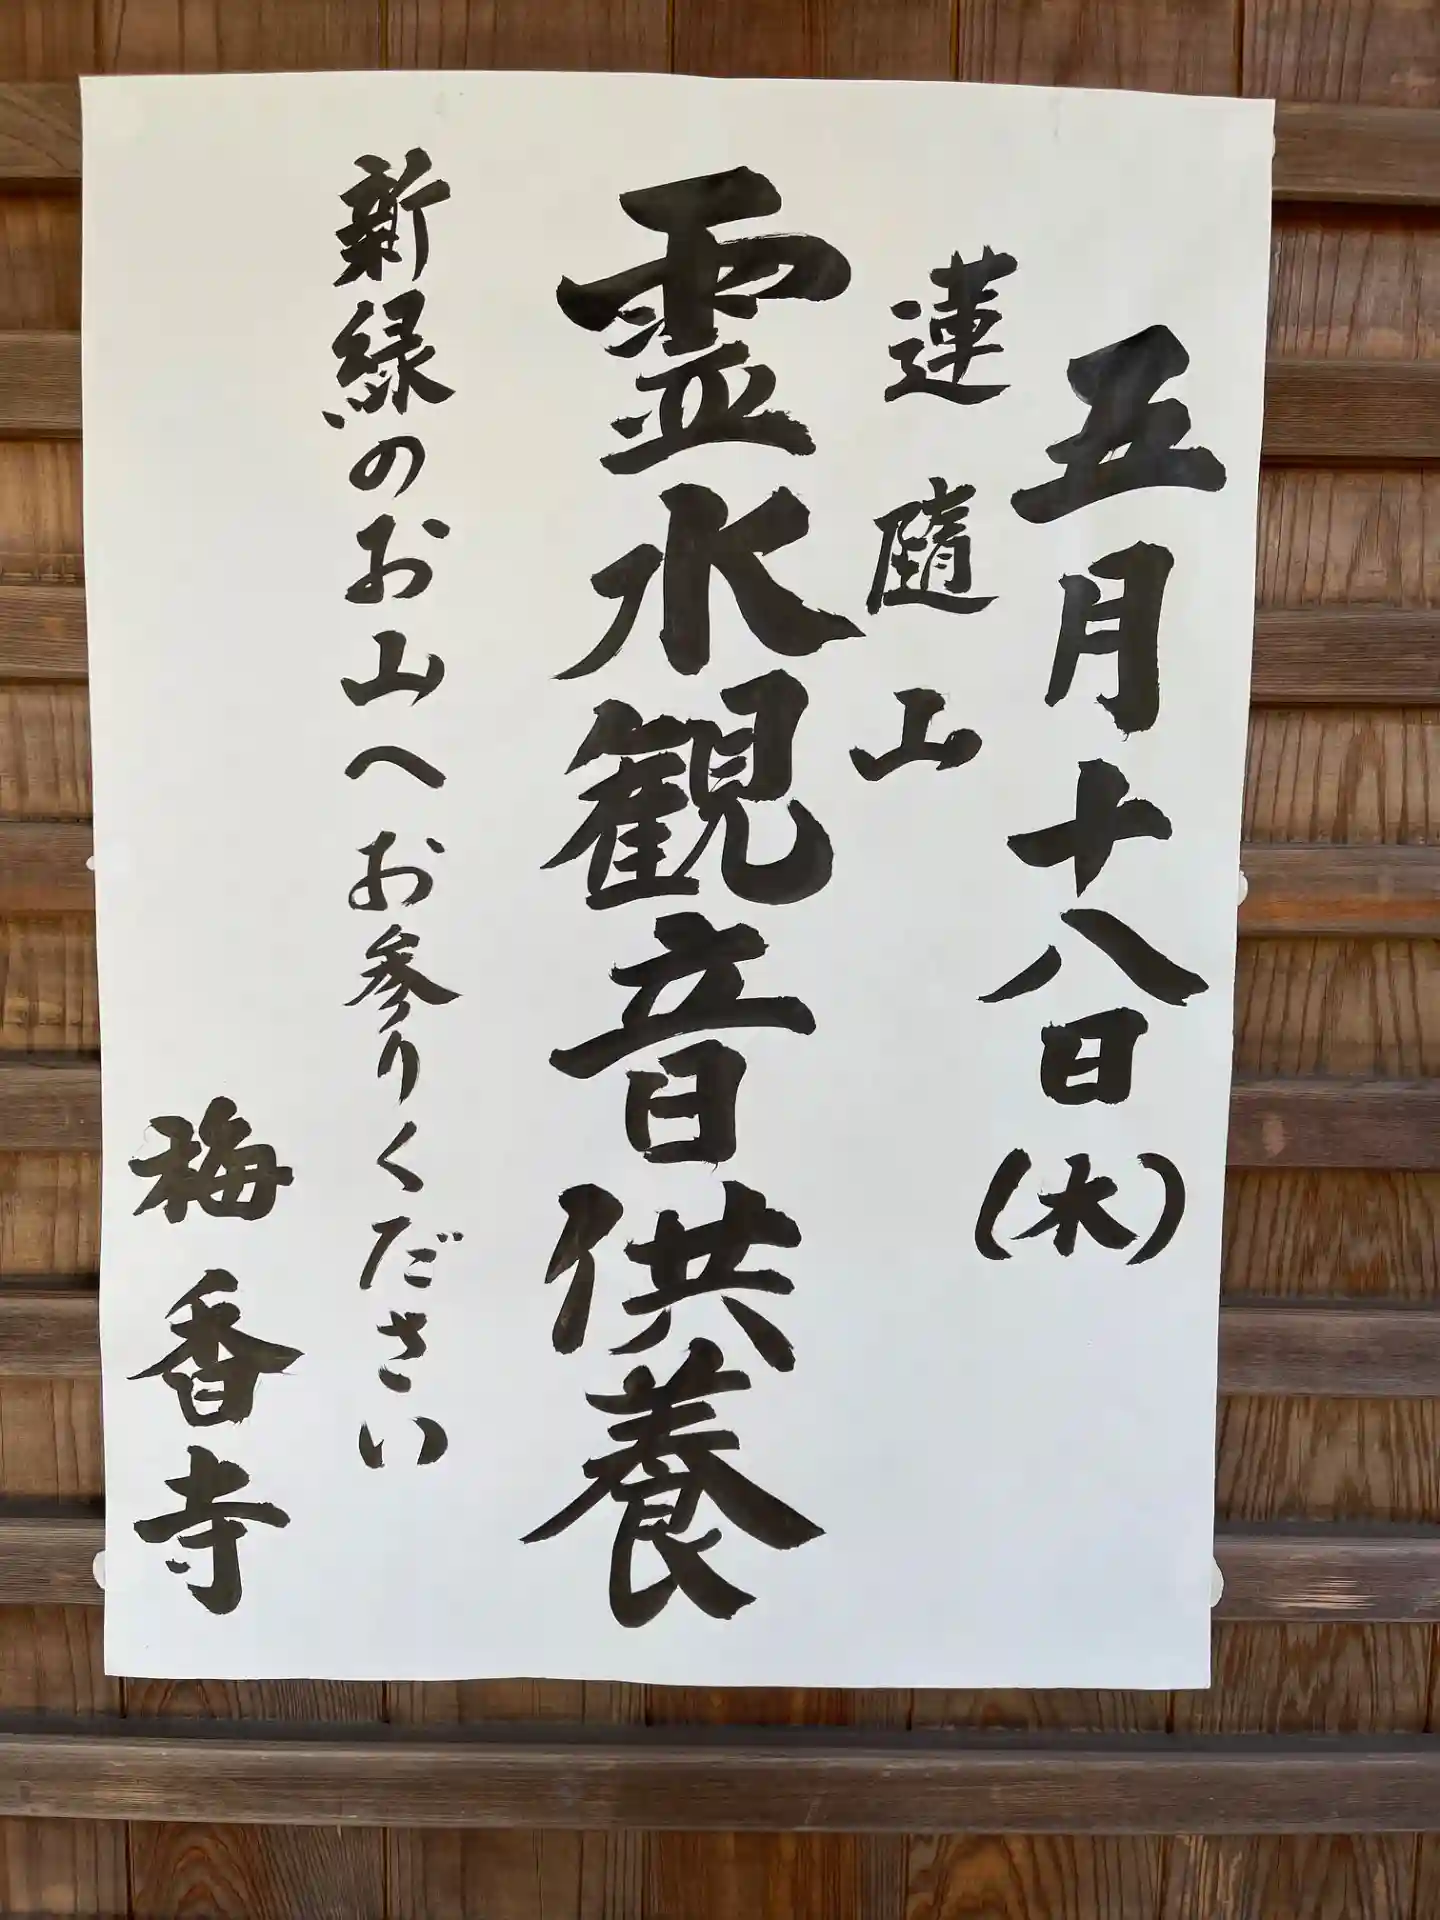 五月十八日(木)
蓮隨山
霊水観音供養
新緑のお山へお参りください
梅香寺